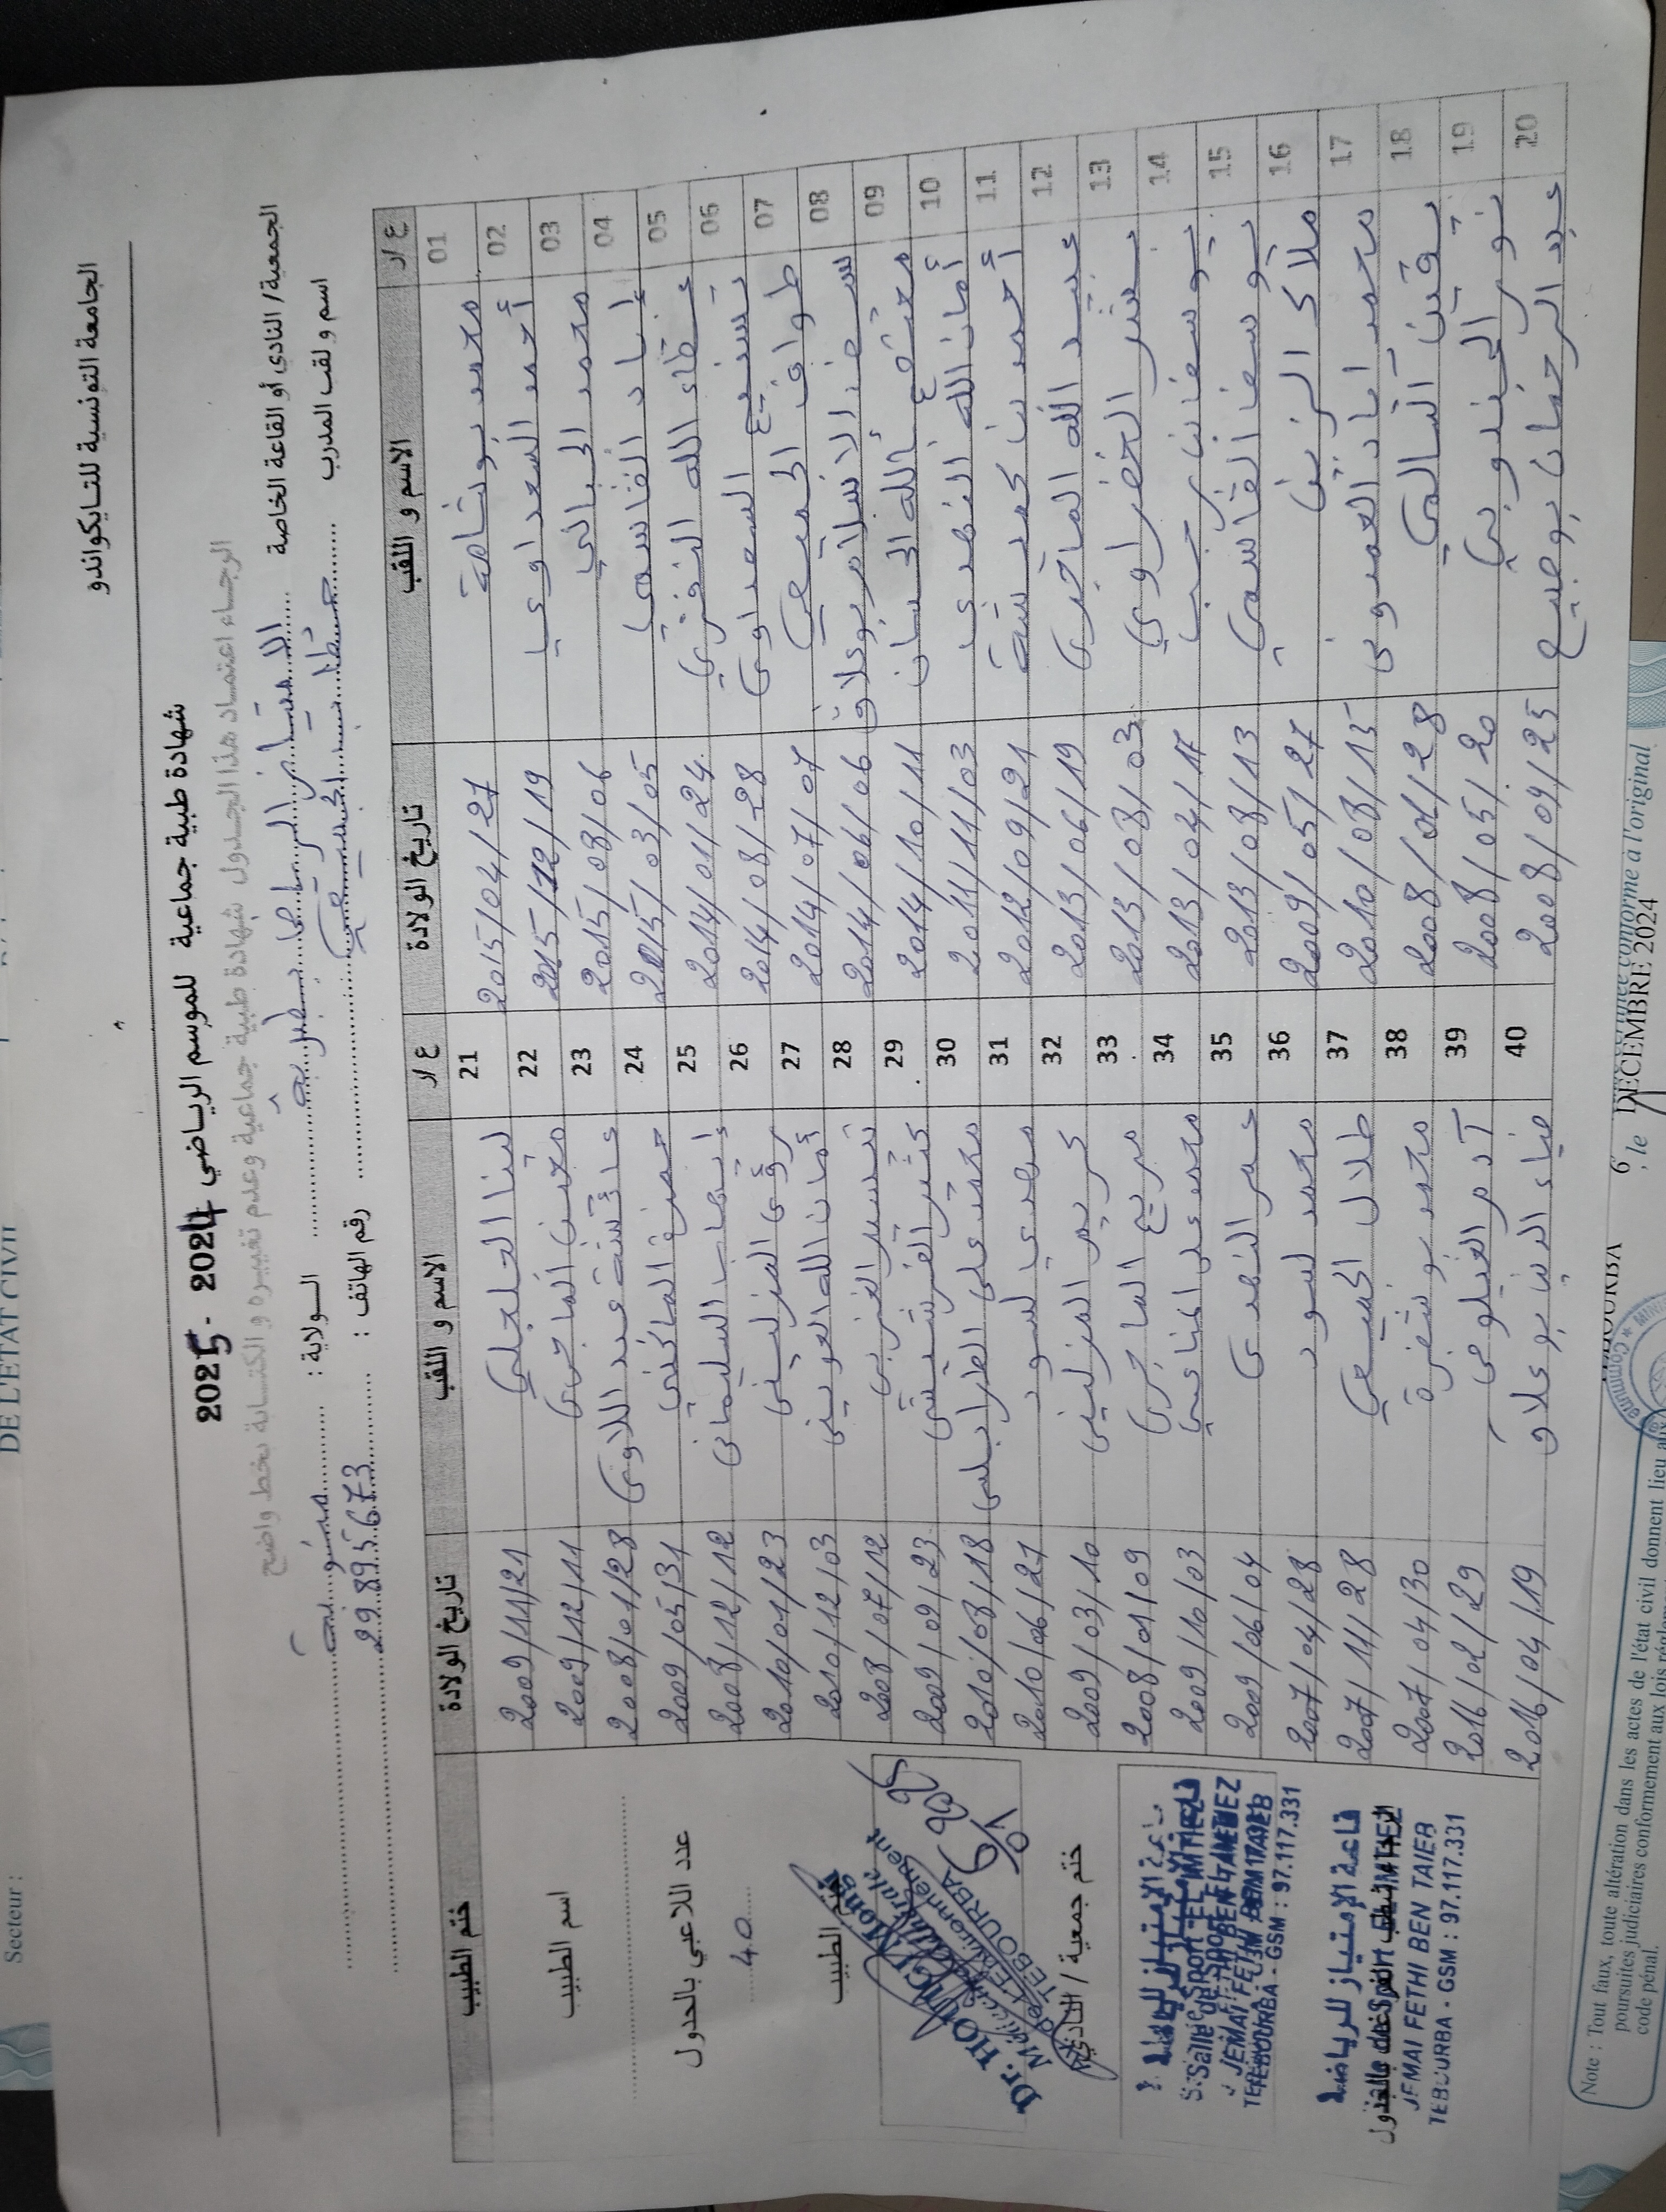 الجامعة التونسية للتايكواندو
شهادة طبية جماعية للموسم الرياضي 2024 - 2025
الرجاء اعتماد هذا الجدول شهادة طبية جماعية وعدم تغييره و الكتابة بخط واضح
الجمعية/ النادي أو القاعة الخاصة الامتياز الرياضي بطبربة الولاية : منوبة
اسم و لقب المدرب رقم الهاتف : 29895673
ع /ر الاسم و اللقب تاريخ الولادة ع /ر الاسم و اللقب تاريخ الولادة ختم الطبيب
01 محمد بوشامة 2015/04/27 21 لينا التحلجلي 2009/11/21
02 أحمد السعداوي 2015/12/19 22 الماجري 2009/12/11
03 محمد الجبالي 2015/08/06 23 عائشة عبد اللاوي 2008/01/28
04 إياد القاسمي 2015/03/05 24 حمزة الماكني 2009/05/31
05 عطاء الله النفزي 2014/01/24 25 إيهاب السليماني 2008/12/12
06 السعداوي 2014/08/28 26 المزليني 2010/01/23
07 طواف الجميعي 2014/07/07 27 أمان الله العويني 2010/12/03
08 سيف الاسلام بوعلاق 2014/06/06 28 تيسير الغربي 2008/07/12
09 معتصم بالله الجبان 2014/10/11 29 2009/02/23
10 أمان الله النهدي 2011/11/03 30 محمد علي الطرابلسي 2010/08/18
11 أحمد بن حميدة 2012/09/21 31 مهدي لسود 2010/06/27
12 عبد الله الماجري 2013/06/19 32 المزليني 2009/03/10
13 بشر الخضراوي 2013/08/03 33 مريم الماجري 2008/01/09
14 يوسف بن رجب 2013/04/17 34 محمد علي المناعي 2009/10/03
15 يوسف القاسمي 2013/08/13 35 عمر النهدي 2009/06/04
16 ملاك الزين 2009/05/27 36 محمد لسود 2007/04/28
17 محمد اياد العمدوني 2010/08/15 37 طلال الجميعي 2007/11/28
18 يقين السالمي 2008/01/28 38 محمد بوشفرة 2007/04/30
19 نور الجندوبي 2008/05/20 39 آدم الغيلوفي 2016/02/29
20 عبد الرحمان بوصبيع 2008/09/25 40 ضياء الدين بوعلاق 2016/04/19
اسم الطبيب
عدد اللاعبي بالجدول
40
ختم الطبيب
Dr. HOU
TEBOURBA
6/01 2025
ختم جمعية / النادي
قاعة الإمتياز للرياضة
Salle de Sport EL IMTIEZ
JEMAI FETHI BEN TAIEB
TEBOURBA - GSM : 97.117.331
قاعة الإمتياز للرياضة
JEMAI FETHI BEN TAIEB
TEBOURBA - GSM : 97.117.331
DE L'ETAT CIVIL
Secteur :
conforme à l'original
, le 6 DECEMBRE 2024
Commune
Note : Tout faux, toute altération dans les actes de l'état civil donnent lieu aux
poursuites judiciaires conformement aux lois
code pénal.